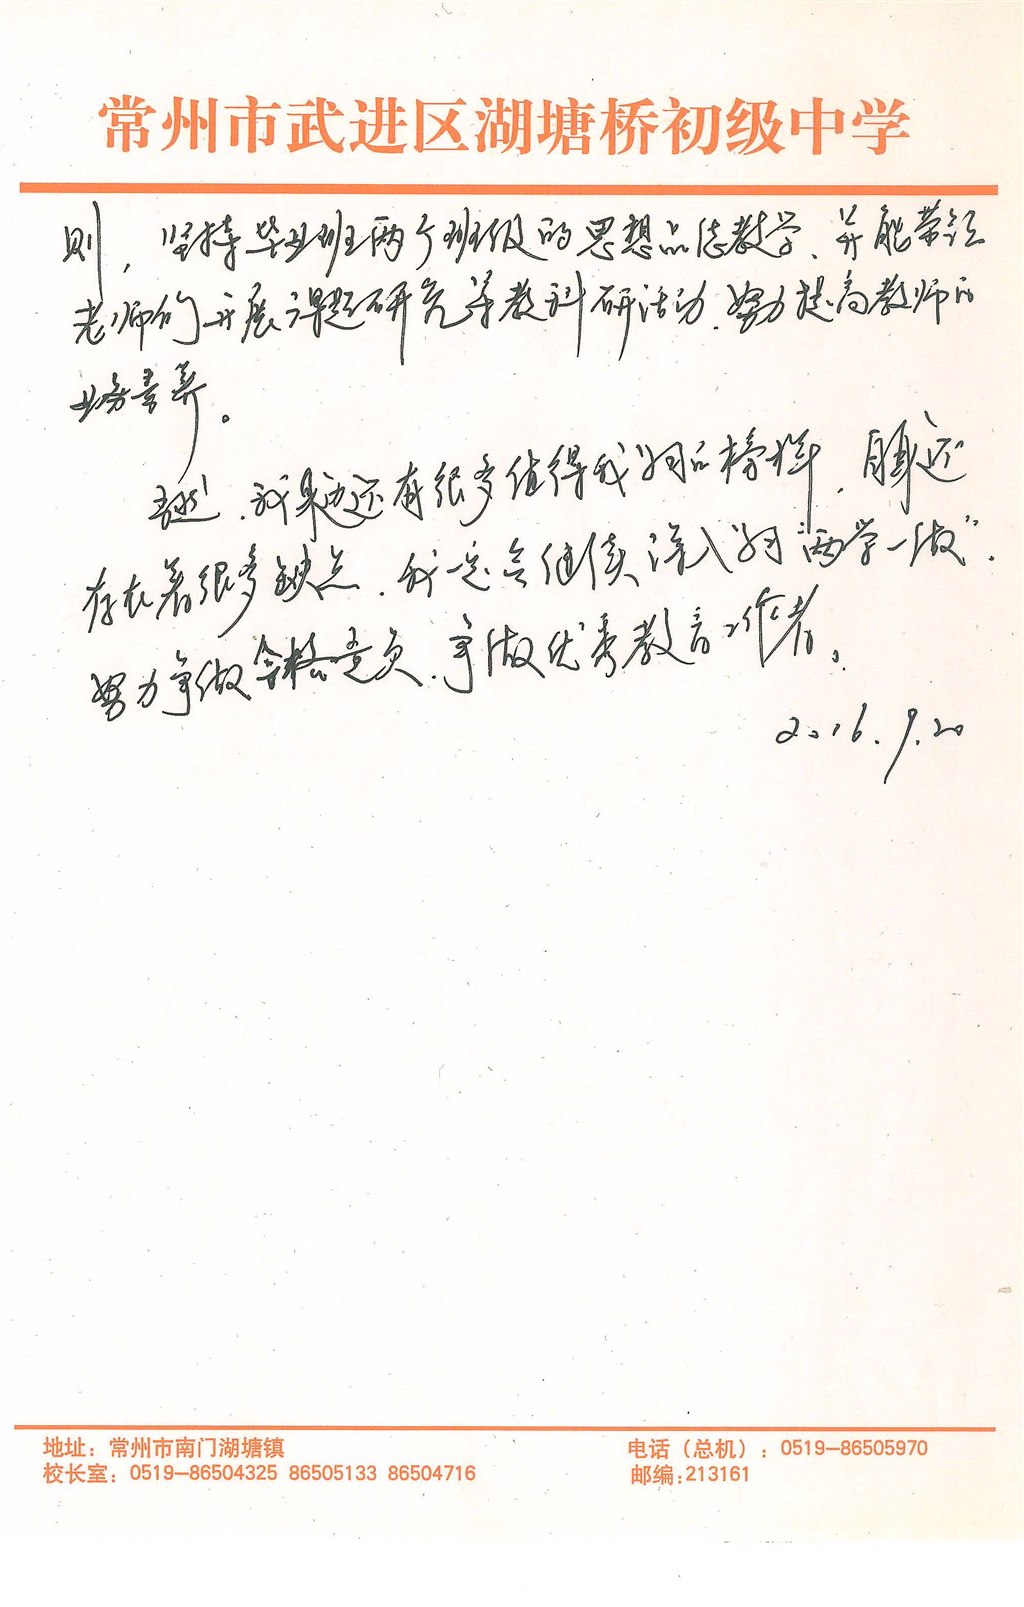 常州市武进区湖塘桥初级中学
则，坚持毕业班两个班级的思想品德教学、并能带领
老师们开展课题研究等教科研活动，努力提高教师的
业务素养。
我身边还有很多值得我学习的榜样，自身还
存在着很多缺点，我一定会继续深入学习“两学一做”，
努力争做合格党员，争做优秀教育工作者。
2016.9.20
地址：常州市南门湖塘镇
校长室：0519—86504325 86505133 86504716
电话（总机）：0519—86505970
邮编:213161